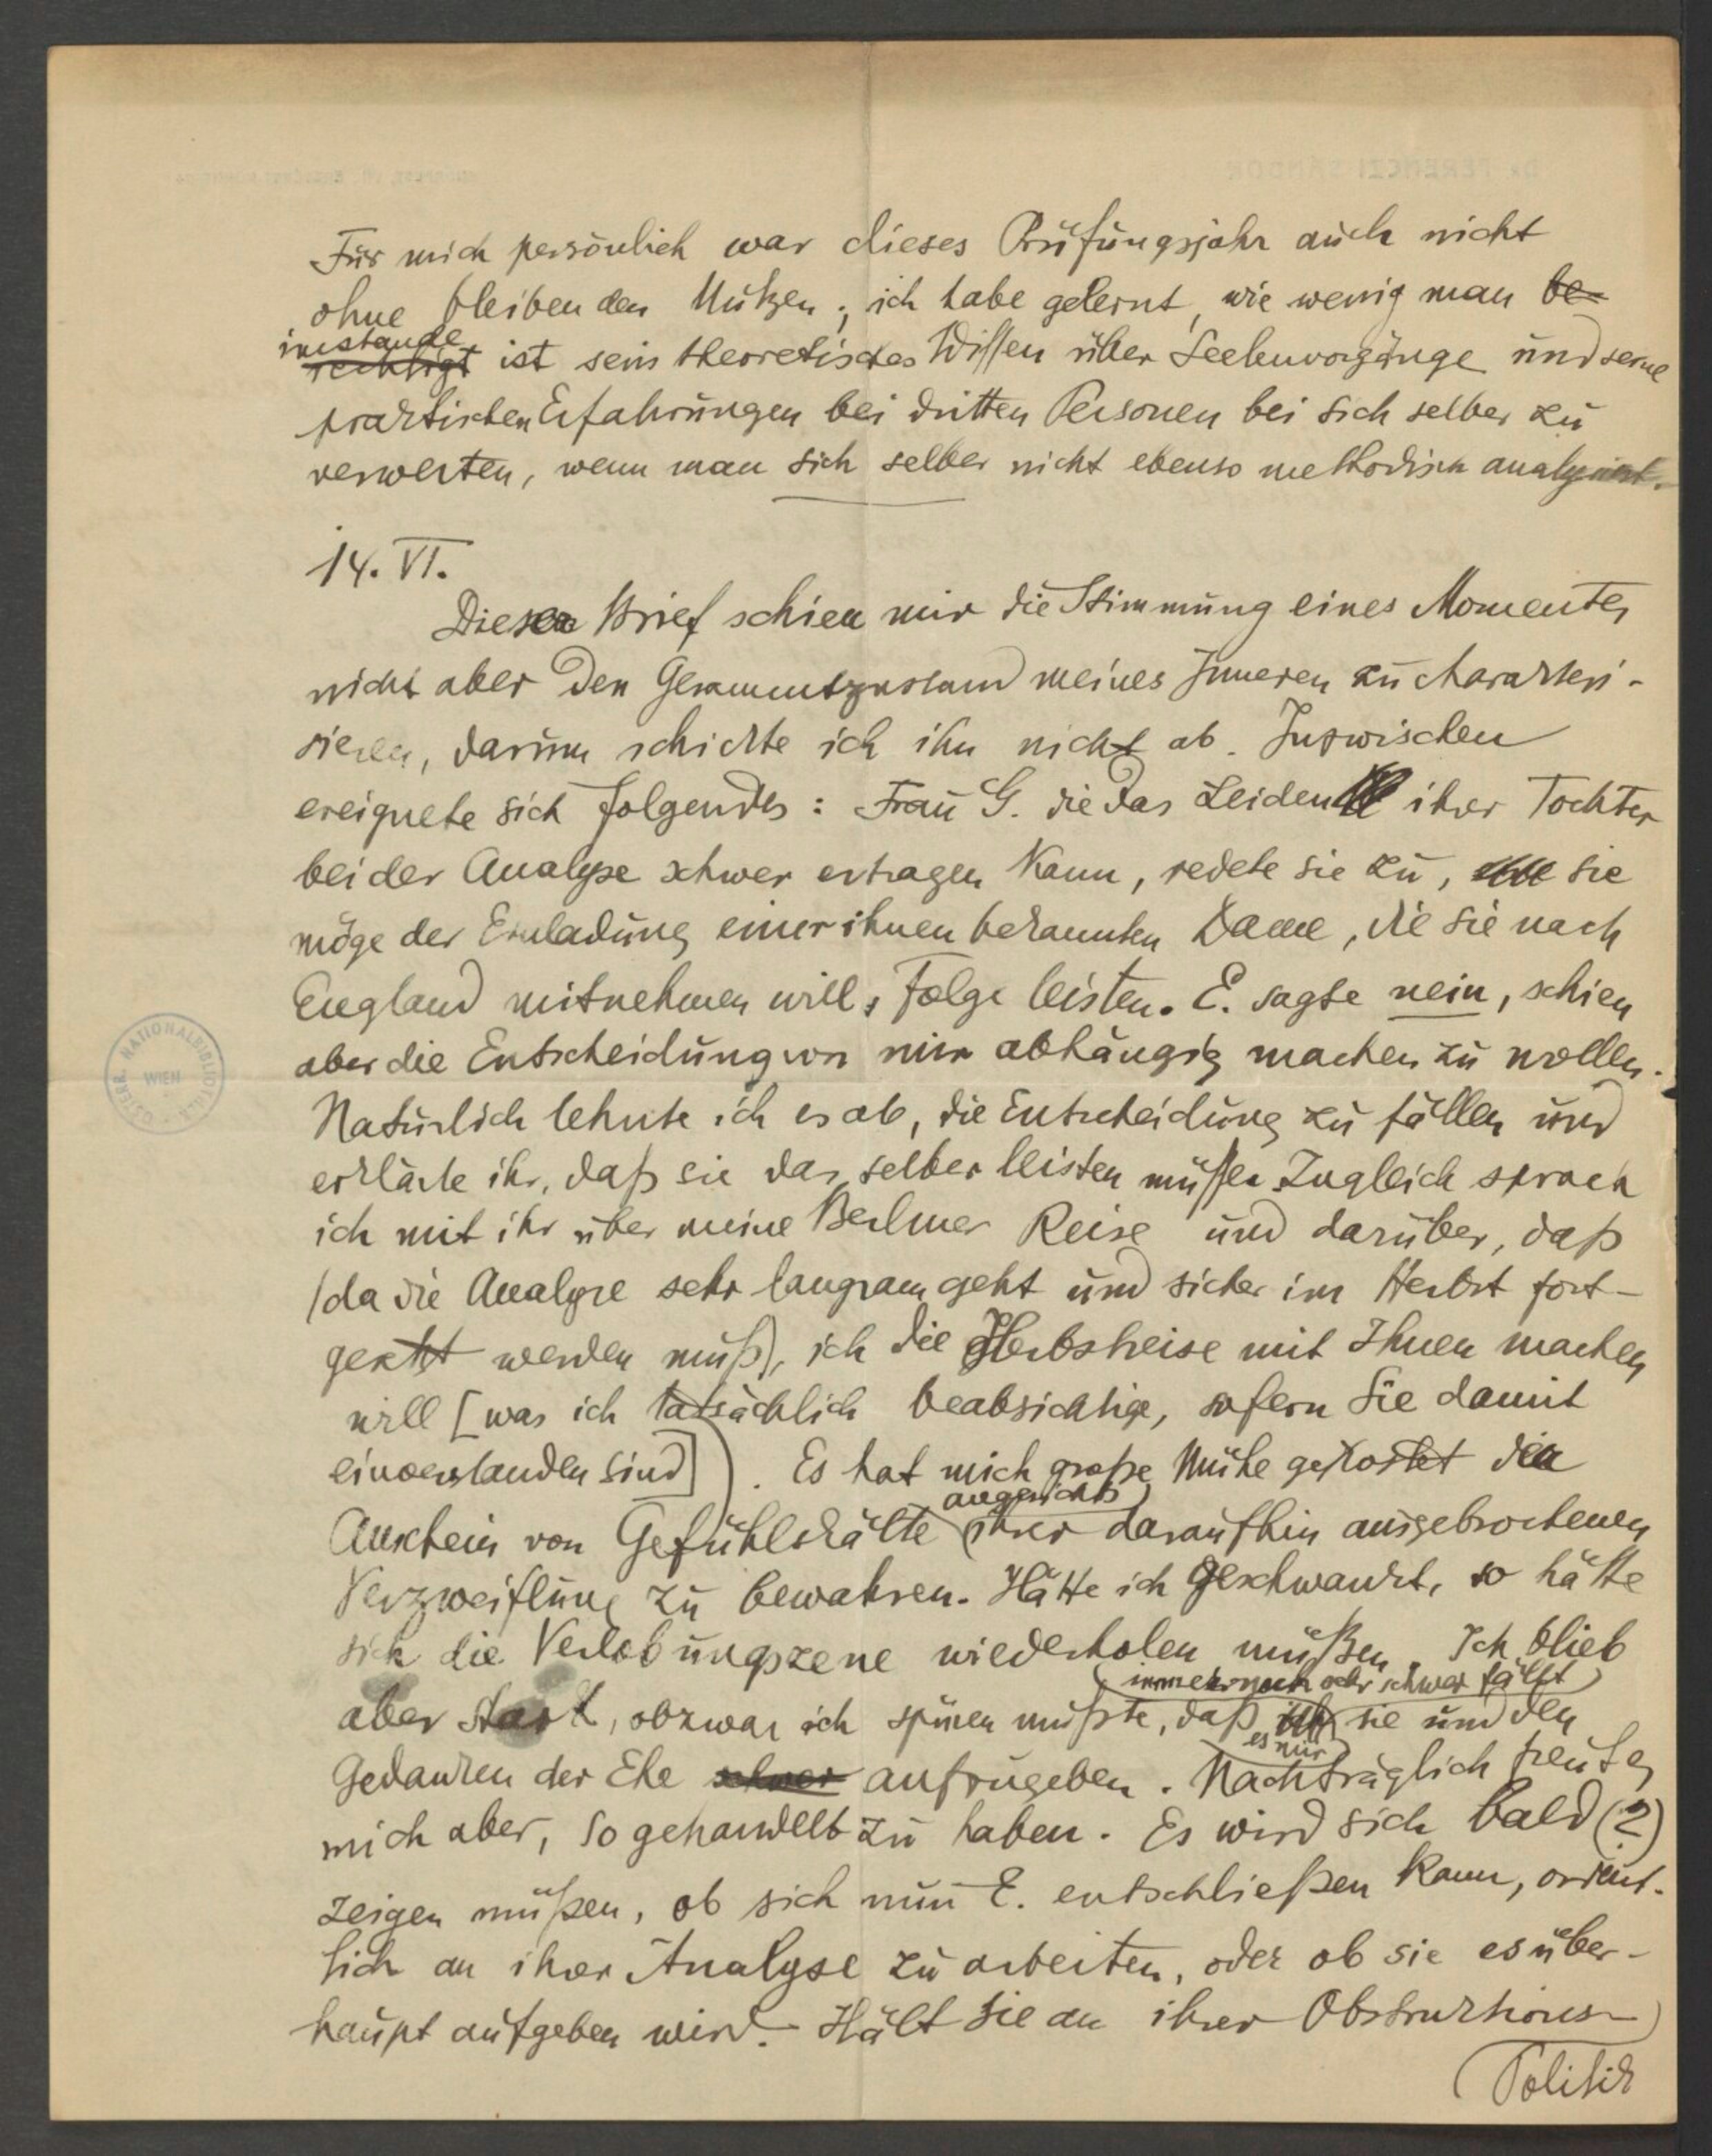 Dr. FERENCZI SÁNDOR
Für mich persönlich war dieses Prüfungsjahr auch nicht
ohne bleibenden Nutzen; ich habe gelernt, wie wenig man be-
imstande
rechtigt ist sein theoretisches Wissen über Seelenvorgänge und seine
praktischen Erfahrungen bei dritten Personen bei sich selber zu
verwerten, wenn man sich selber nicht ebenso methodisch analysiert.
14. VI.
Dieser Brief schien mir die Stimmung eines Momentes,
nicht aber den Gesammtzustand meines Inneren zu charakteri-
sieren, darum schickte ich ihn nicht ab. Inzwischen
ereignete sich folgendes: Frau G. die das Leiden ihrer Tochter
bei der Analyse schwer ertragen kann, redete sie zu, sie
möge der Einladung einer ihnen bekannten Dame, die sie nach
England mitnehmen will, Folge leisten. E. sagte nein, schien
aber die Entscheidung von mir abhängig machen zu wollen.
Natürlich lehnte ich es ab, die Entscheidung zu fällen und
erklärte ihr, daß sie das selber leisten müsse. Zugleich sprach
ich mit ihr über meine Berliner Reise und darüber, daß
(da die Analyse sehr langsam geht und sicher im Herbst fort-
gesetzt werden muß), ich die Herbstreise mit Ihnen machen
will [was ich tatsächlich beabsichtige, sofern Sie damit
einverstanden sind]. Es hat mich große Mühe gekostet den
angesichts
Anschein von Gefühlskälte ihrer daraufhin ausgebrochenen
Verzweiflung zu bewahren. Hätte ich geschwankt, so hätte
sich die Verlobungszene wiederholen müßen. Ich blieb
immer noch sehr schwer fällt
aber stark, obzwar ich spüren mußte, daß ich sie und den
es mir
Gedanken der Ehe schwer aufzugeben. Nachträglich freute es
mich aber, so gehandelt zu haben. Es wird sich bald (?)
zeigen müßen, ob sich nun E. entschließen kann, ordent-
lich an ihrer Analyse zu arbeiten, oder ob sie es über-
haupt aufgeben wird. Hält sie an ihrer Obstruktions-
Politik
ÖSTERR. NATIONALBIBLIOTHEK
WIEN